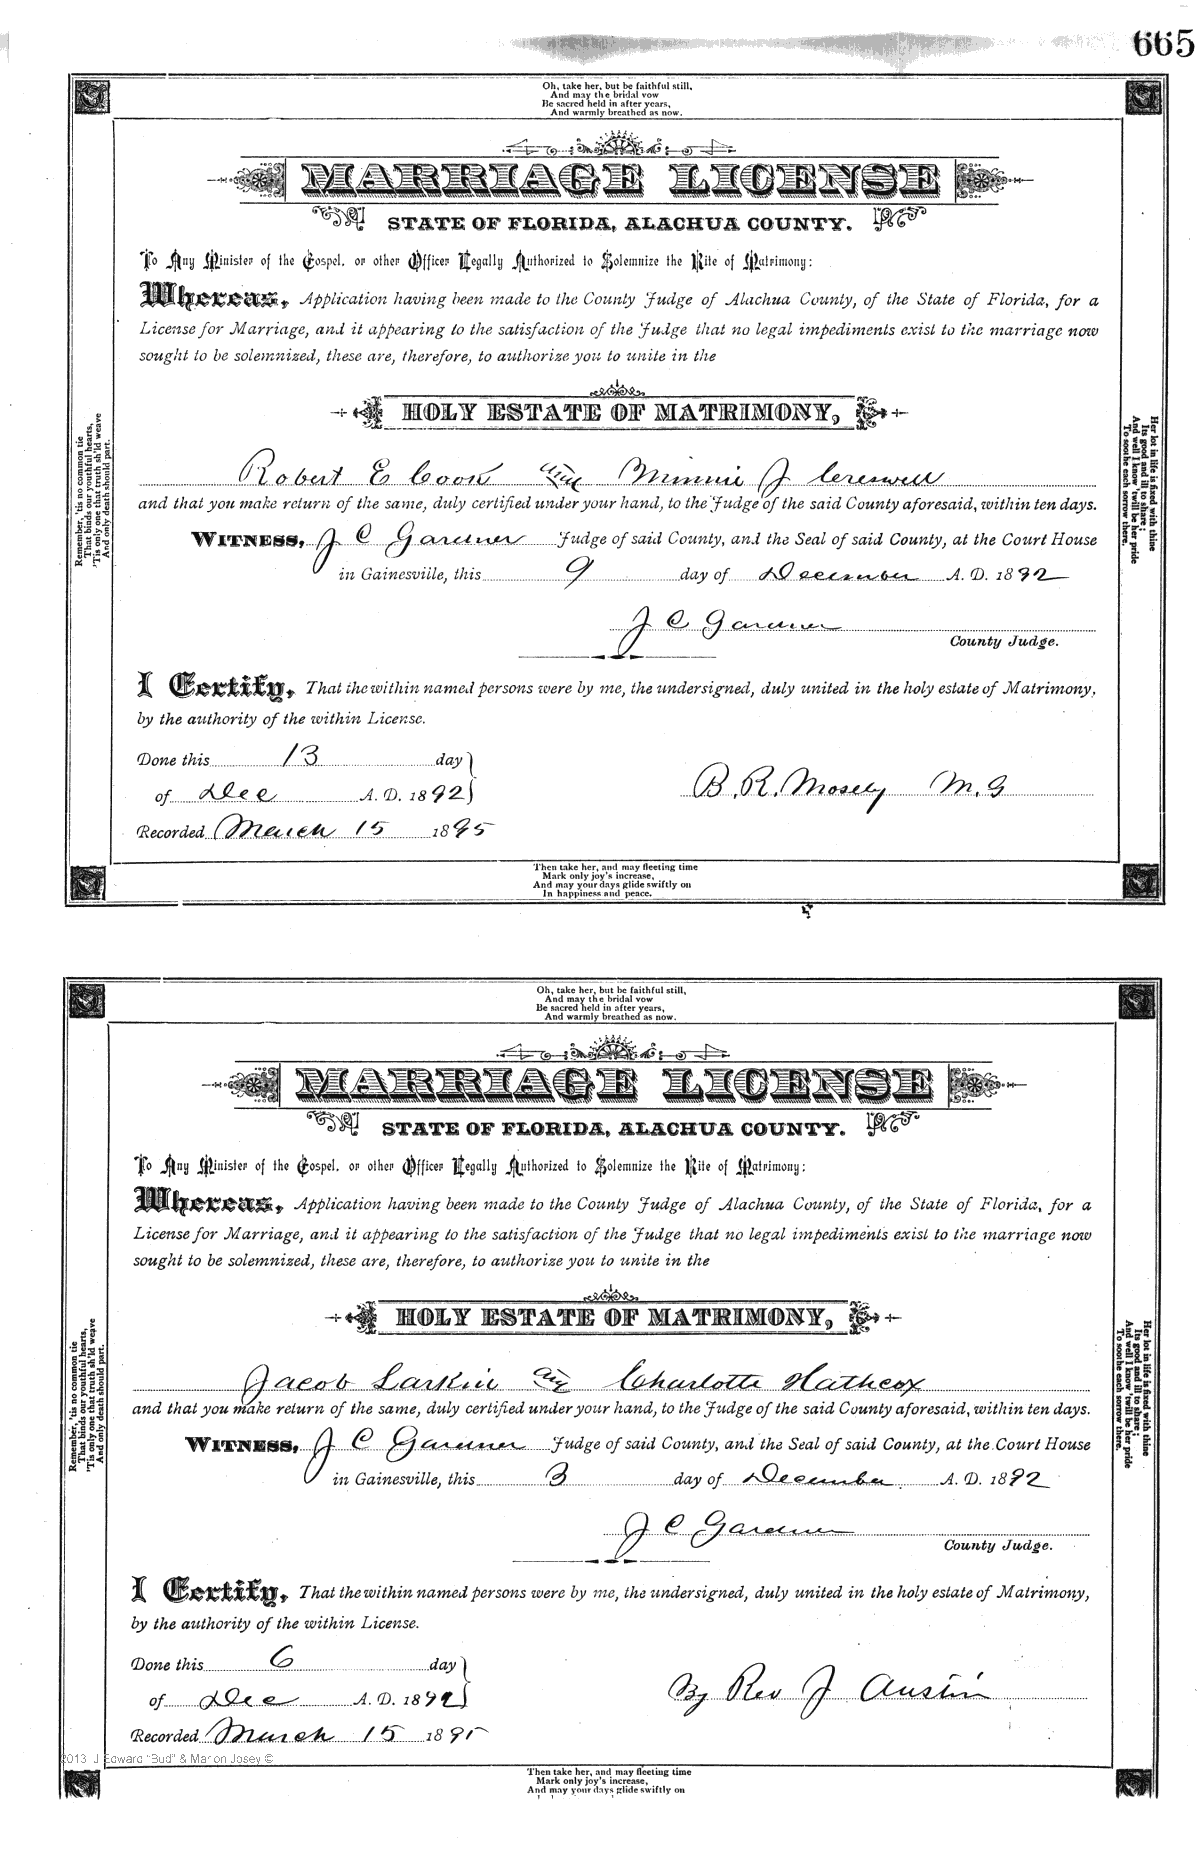 665
Oh, take her, but be faithful still,
And may the bridal vow
Be sacred held in after years,
And warmly breathed as now.
MARRIAGE LICENSE
STATE OF FLORIDA, ALACHUA COUNTY.
To Any Minister of the Gospel, or other Officer Legally Authorized to Solemnize the Rite of Matrimony:
Whereas, Application having been made to the County Judge of Alachua County, of the State of Florida, for a
License for Marriage, and it appearing to the satisfaction of the Judge that no legal impediments exist to the marriage now
sought to be solemnized, these are, therefore, to authorize you to unite in the
HOLY ESTATE OF MATRIMONY,
Robert E Cook and Minnie J Creswell
and that you make return of the same, duly certified under your hand, to the Judge of the said County aforesaid, within ten days.
WITNESS, J C Gardner Judge of said County, and the Seal of said County, at the Court House
in Gainesville, this 9 day of December A. D. 1892
J C Gardner
County Judge.
I Certify, That the within named persons were by me, the undersigned, duly united in the holy estate of Matrimony,
by the authority of the within License.
Done this 13 day
of Dec A. D. 1892
B. R. Mosely M. G
Recorded March 15 1895
Then take her, and may fleeting time
Mark only joy's increase,
And may your days glide swiftly on
In happiness and peace.
Remember, 'tis no common tie
That binds our youthful hearts,
'Tis only one that truth sh'ld weave
And only death should part.
Her lot in life is fixed with thine
Its good and ill to share;
And well I know 'twill be her pride
To soothe each sorrow there.
Oh, take her, but be faithful still,
And may the bridal vow
Be sacred held in after years,
And warmly breathed as now.
MARRIAGE LICENSE
STATE OF FLORIDA, ALACHUA COUNTY.
To Any Minister of the Gospel, or other Officer Legally Authorized to Solemnize the Rite of Matrimony:
Whereas, Application having been made to the County Judge of Alachua County, of the State of Florida, for a
License for Marriage, and it appearing to the satisfaction of the Judge that no legal impediments exist to the marriage now
sought to be solemnized, these are, therefore, to authorize you to unite in the
HOLY ESTATE OF MATRIMONY,
Jacob Larkin and Charlotte Hathcox
and that you make return of the same, duly certified under your hand, to the Judge of the said County aforesaid, within ten days.
WITNESS, J C Gardner Judge of said County, and the Seal of said County, at the Court House
in Gainesville, this 3 day of December A. D. 1892
J C Gardner
County Judge.
I Certify, That the within named persons were by me, the undersigned, duly united in the holy estate of Matrimony,
by the authority of the within License.
Done this 6 day
of Dec A. D. 1892
By Rev J Austin
Recorded March 15 1895
2013 J Edward "Bud" & Marion Josey ©
Then take her, and may fleeting time
Mark only joy's increase,
And may your days glide swiftly on
Remember, 'tis no common tie
That binds our youthful hearts,
'Tis only one that truth sh'ld weave
And only death should part.
Her lot in life is fixed with thine
Its good and ill to share;
And well I know 'twill be her pride
To soothe each sorrow there.